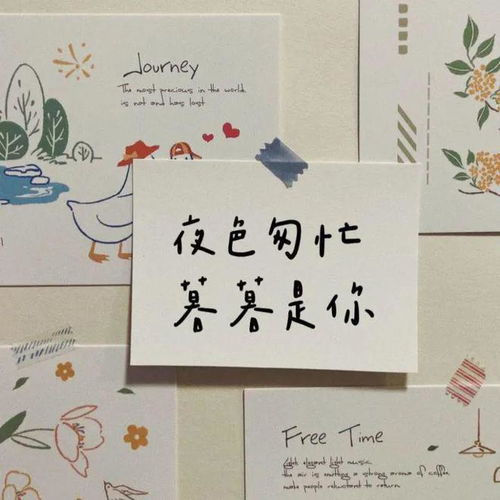 Journey
The most precious in the world
is not and has lost
夜色匆忙
暮暮是你
Free Time
light elegant light music
the air is emitting a strong aroma of coffee
make people reluctant to return